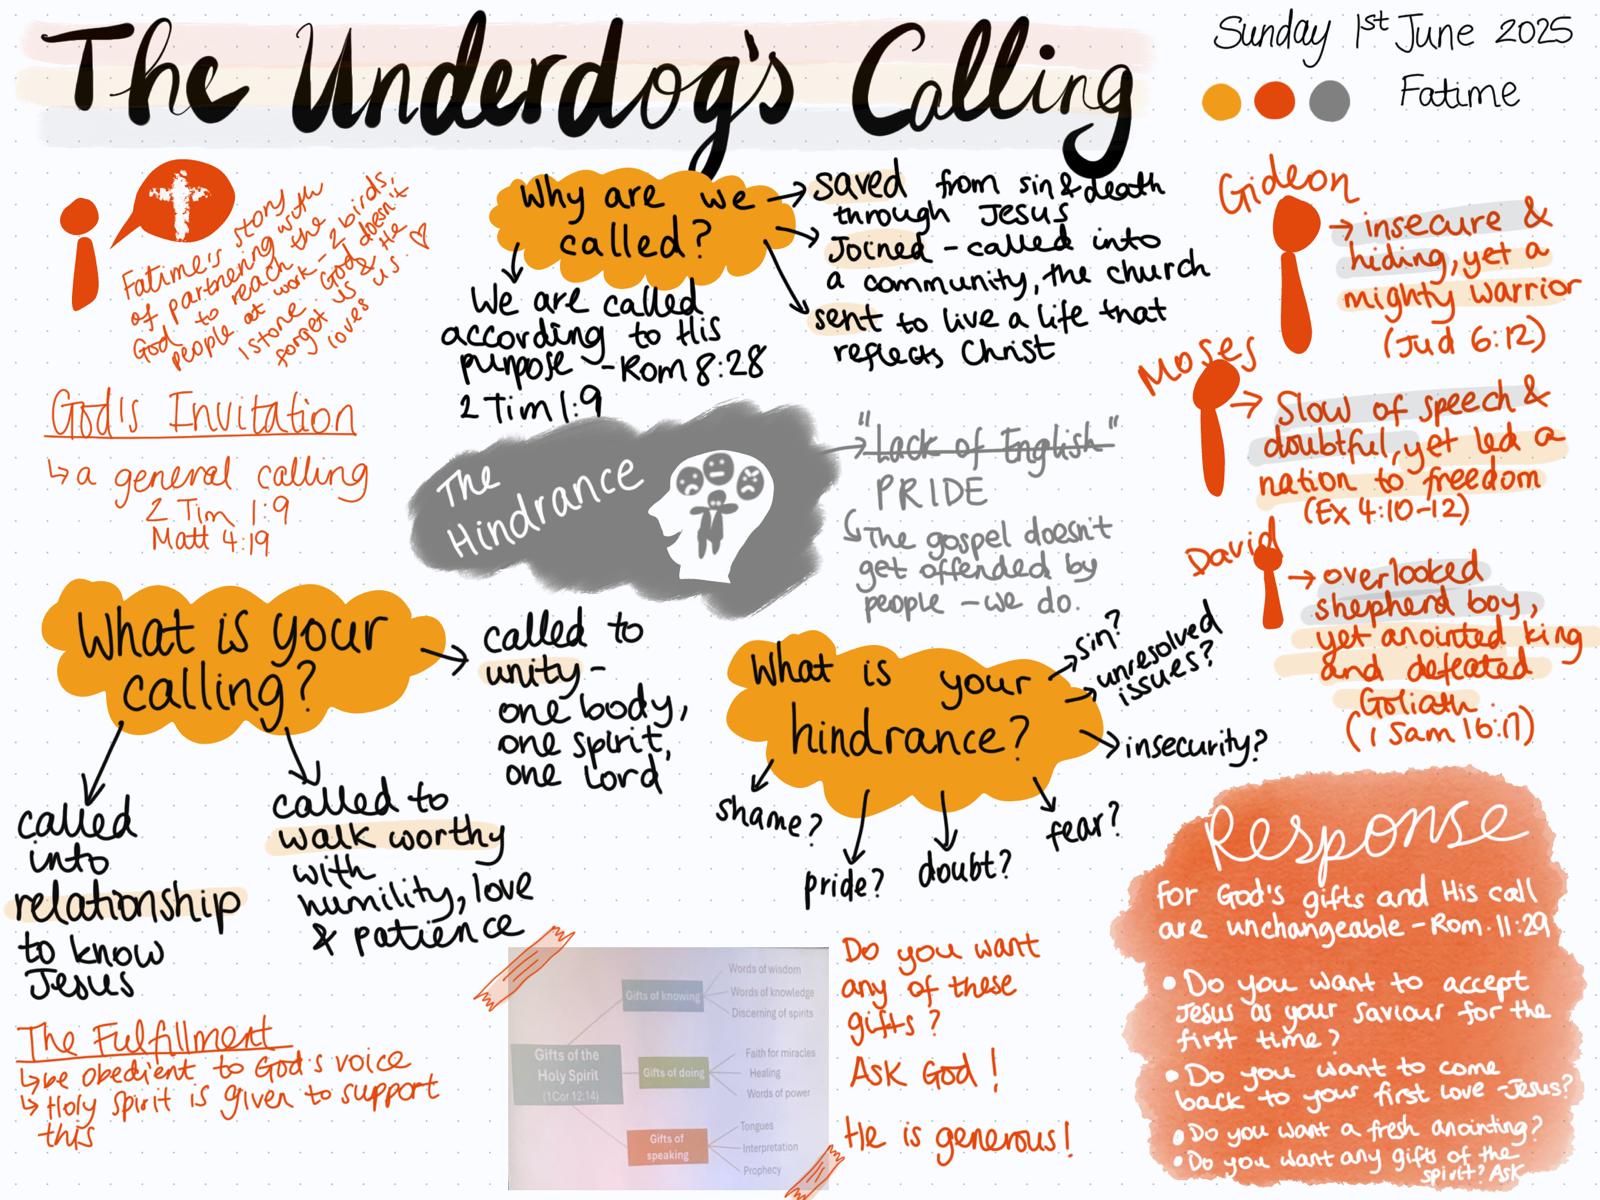 The Underdog's Calling
Sunday 1st June 2025
Fatime
Fatime's story
of partnering with
God to reach the
people at work - 2 birds,
1 stone. God doesn't
forget us & He
loves us. ♡
God's Invitation
↳ a general calling
2 Tim 1:9
Matt 4:19
Why are we
called?
We are called
according to His
purpose - Rom 8:28
2 Tim 1:9
→ saved from sin & death
through Jesus
→ Joined - called into
a community, the church
sent to live a life that
reflects Christ
The
Hindrance
→ "Lack of English"
PRIDE
↳ The gospel doesn't
get offended by
people - we do.
Gideon
→ insecure &
hiding, yet a
mighty warrior
(Jud 6:12)
Moses
→ Slow of speech &
doubtful, yet led a
nation to freedom
(Ex 4:10-12)
David
→ overlooked
shepherd boy,
yet anointed king
and defeated
Goliath.
(1 Sam 16:17)
What is your
calling?
called
into
relationship
to know
Jesus
called to
walk worthy
with
humility, love
& patience
→ called to
unity -
one body,
one spirit,
one Lord
What is your
hindrance?
sin?
unresolved
issues?
insecurity?
fear?
doubt?
pride?
shame?
The Fulfillment
↳ be obedient to God's voice
↳ Holy Spirit is given to support
this
Gifts of the
Holy Spirit
(1Cor 12:14)
Gifts of knowing
Words of wisdom
Words of knowledge
Discerning of spirits
Gifts of doing
Faith for miracles
Healing
Words of power
Gifts of
speaking
Tongues
Interpretation
Prophecy
Do you want
any of these
gifts?
Ask God!
He is generous!
Response
For God's gifts and His call
are unchangeable - Rom. 11:29
• Do you want to accept
Jesus as your Saviour for the
first time?
• Do you want to come
back to your first love - Jesus?
• Do you want a fresh anointing?
• Do you want any gifts of the
spirit? Ask